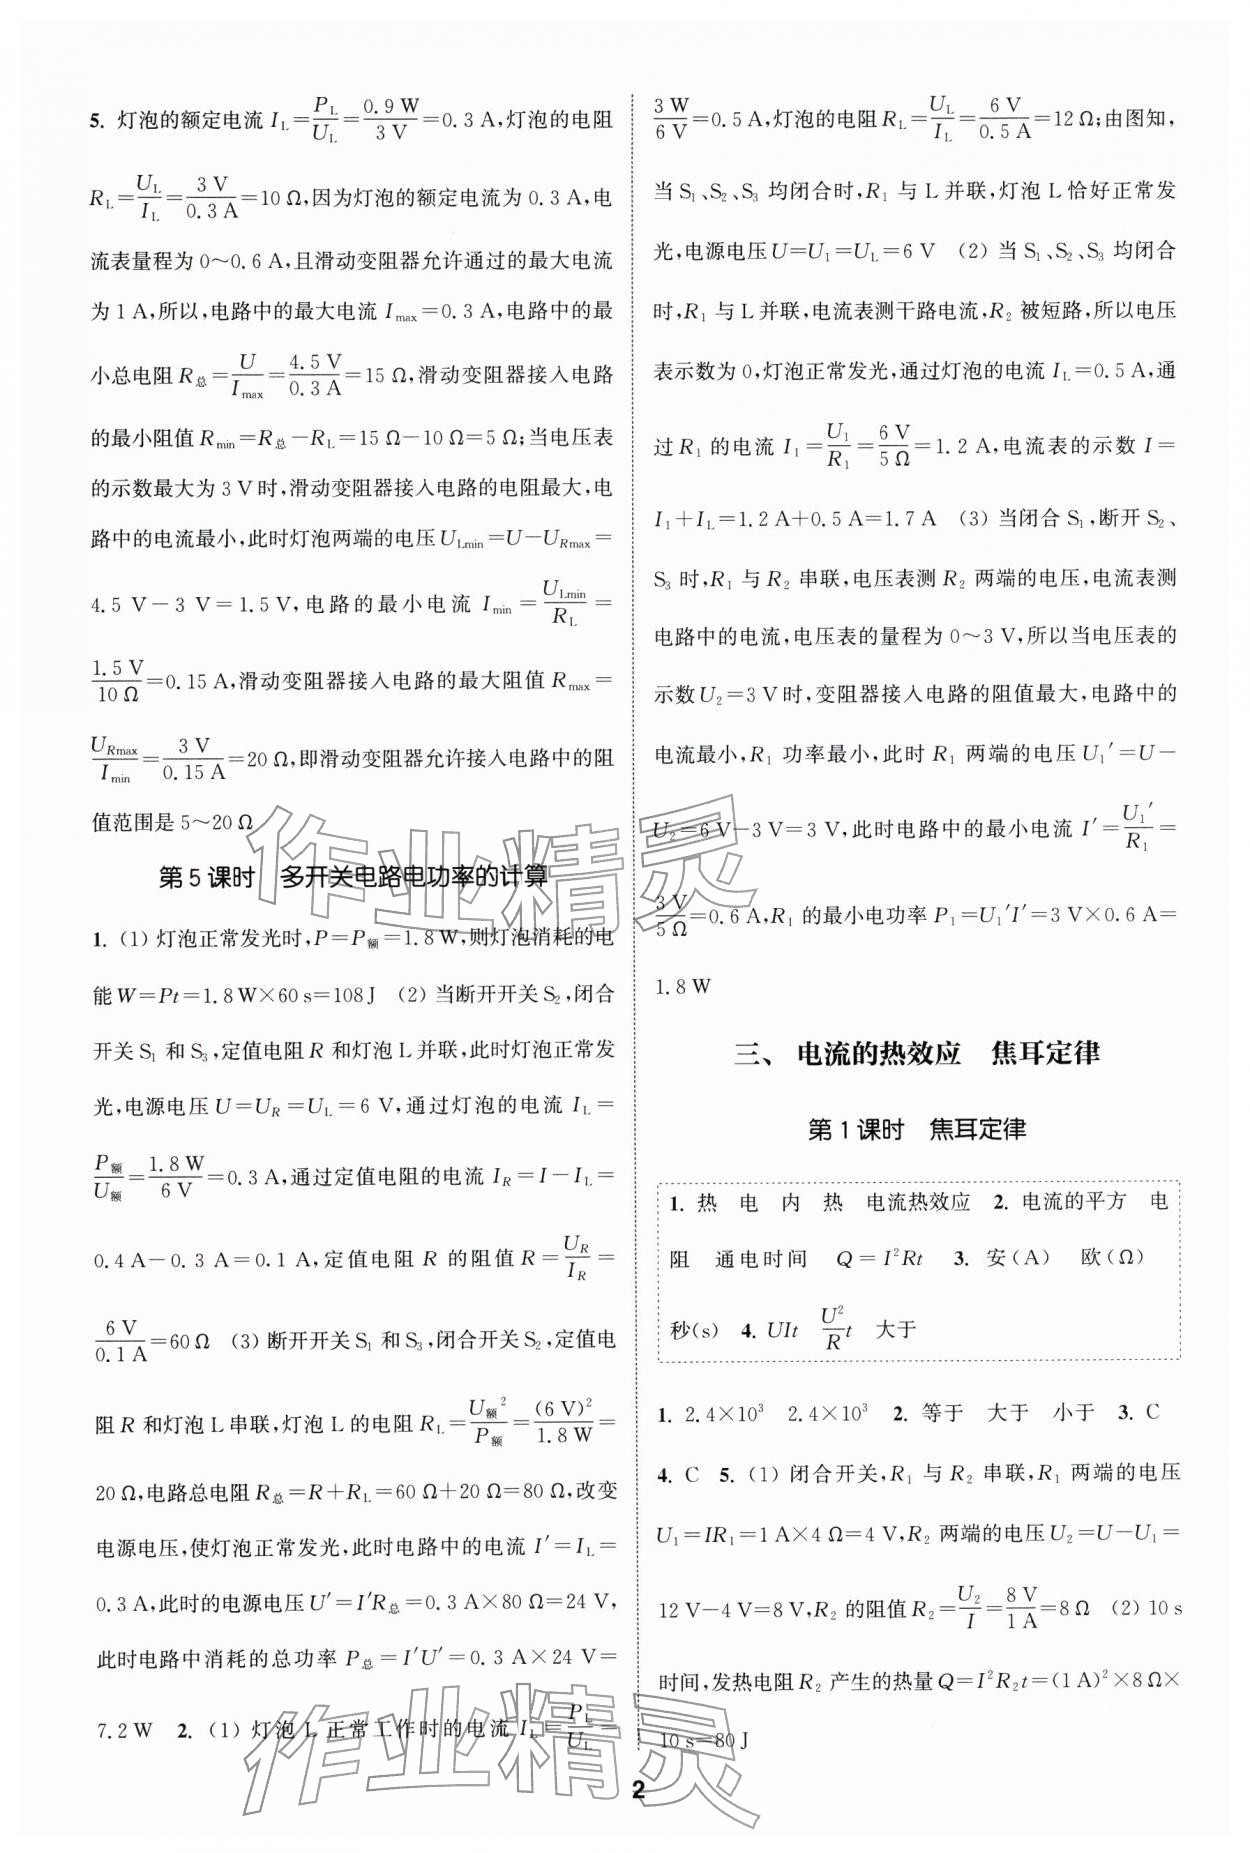 5. 灯泡的额定电流 I_L=P_L/U_L=0.9 W/3 V=0.3 A,灯泡的电阻
R_L=U_L/I_L=3 V/0.3 A=10 Ω,因为灯泡的额定电流为 0.3 A,电
流表量程为 0～0.6 A,且滑动变阻器允许通过的最大电流
为 1 A,所以,电路中的最大电流 I_max=0.3 A,电路中的最
小总电阻 R_总=U/I_max=4.5 V/0.3 A=15 Ω,滑动变阻器接入电路
的最小阻值 R_min=R_总-R_L=15 Ω-10 Ω=5 Ω;当电压表
的示数最大为 3 V 时,滑动变阻器接入电路的电阻最大,电
路中的电流最小,此时灯泡两端的电压 U_Lmin=U-U_Rmax=
4.5 V-3 V=1.5 V,电路的最小电流 I_min=U_Lmin/R_L=
1.5 V/10 Ω=0.15 A,滑动变阻器接入电路的最大阻值 R_max=
U_Rmax/I_min=3 V/0.15 A=20 Ω,即滑动变阻器允许接入电路中的阻
值范围是 5～20 Ω
第 5 课时 多开关电路电功率的计算
1. (1) 灯泡正常发光时,P=P_额=1.8 W,则灯泡消耗的电
能 W=Pt=1.8 W×60 s=108 J (2) 当断开开关 S₂,闭合
开关 S₁ 和 S₃,定值电阻 R 和灯泡 L 并联,此时灯泡正常发
光,电源电压 U=U_R=U_L=6 V,通过灯泡的电流 I_L=
P_额/U_额=1.8 W/6 V=0.3 A,通过定值电阻的电流 I_R=I-I_L=
0.4 A-0.3 A=0.1 A,定值电阻 R 的阻值 R=U_R/I_R=
6 V/0.1 A=60 Ω (3) 断开开关 S₁ 和 S₃,闭合开关 S₂,定值电
阻 R 和灯泡 L 串联,灯泡 L 的电阻 R_L=U_额²/P_额=(6 V)²/1.8 W=
20 Ω,电路总电阻 R_总=R+R_L=60 Ω+20 Ω=80 Ω,改变
电源电压,使灯泡正常发光,此时电路中的电流 I′=I_L=
0.3 A,此时的电源电压 U′=I′R_总=0.3 A×80 Ω=24 V,
此时电路中消耗的总功率 P_总=I′U′=0.3 A×24 V=
7.2 W 2. (1) 灯泡 L 正常工作时的电流 I_L=P_L/U_L=
3 W/6 V=0.5 A,灯泡的电阻 R_L=U_L/I_L=6 V/0.5 A=12 Ω;由图知,
当 S₁、S₂、S₃ 均闭合时,R₁ 与 L 并联,灯泡 L 恰好正常发
光,电源电压 U=U₁=U_L=6 V (2) 当 S₁、S₂、S₃ 均闭合
时,R₁ 与 L 并联,电流表测干路电流,R₂ 被短路,所以电压
表示数为 0,灯泡正常发光,通过灯泡的电流 I_L=0.5 A,通
过 R₁ 的电流 I₁=U₁/R₁=6 V/5 Ω=1.2 A,电流表的示数 I=
I₁+I_L=1.2 A+0.5 A=1.7 A (3) 当闭合 S₁,断开 S₂、
S₃ 时,R₁ 与 R₂ 串联,电压表测 R₂ 两端的电压,电流表测
电路中的电流,电压表的量程为 0～3 V,所以当电压表的
示数 U₂=3 V 时,变阻器接入电路的阻值最大,电路中的
电流最小,R₁ 功率最小,此时 R₁ 两端的电压 U₁′=U-
U₂=6 V-3 V=3 V,此时电路中的最小电流 I′=U₁′/R₁=
3 V/5 Ω=0.6 A,R₁ 的最小电功率 P₁=U₁′I′=3 V×0.6 A=
1.8 W
三、 电流的热效应 焦耳定律
第 1 课时 焦耳定律
1. 热 电 内 热 电流热效应 2. 电流的平方 电
阻 通电时间 Q=I²Rt 3. 安(A) 欧(Ω)
秒(s) 4. UIt U²/R t 大于
1. 2.4×10³ 2.4×10³ 2. 等于 大于 小于 3. C
4. C 5. (1) 闭合开关,R₁ 与 R₂ 串联,R₁ 两端的电压
U₁=IR₁=1 A×4 Ω=4 V,R₂ 两端的电压 U₂=U-U₁=
12 V-4 V=8 V,R₂ 的阻值 R₂=U₂/I=8 V/1 A=8 Ω (2) 10 s
时间,发热电阻 R₂ 产生的热量 Q=I²R₂t=(1 A)²×8 Ω×
10 s=80 J
2
作业精灵
作业精灵